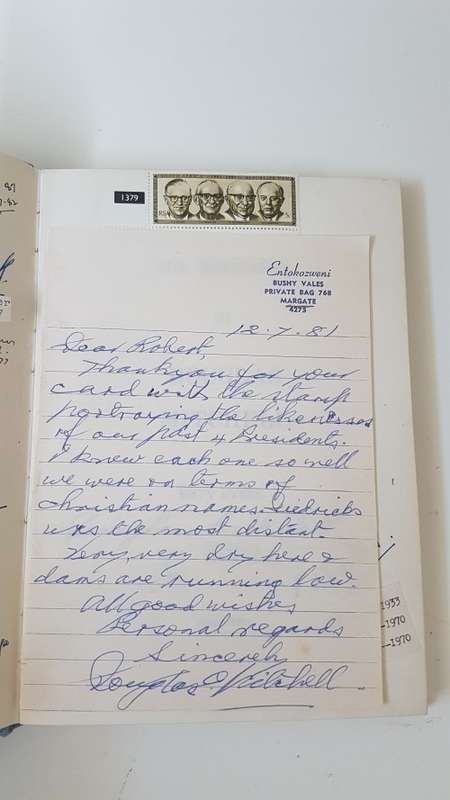 1379
RSA
Entokozweni
BUSHY VALES
PRIVATE BAG 768
MARGATE
4273
12.7.81
Dear Robert,
Thank you for your
card with the stamp
portraying the likenesses
of our past 4 Presidents.
I knew each one so well
we were on terms of
Christian names. Diedricks
was the most distant.
Very, very dry here &
dams are running low.
All good wishes
Personal regards
Sincerely
Douglas E Mitchell.
1933
—1970
—1970